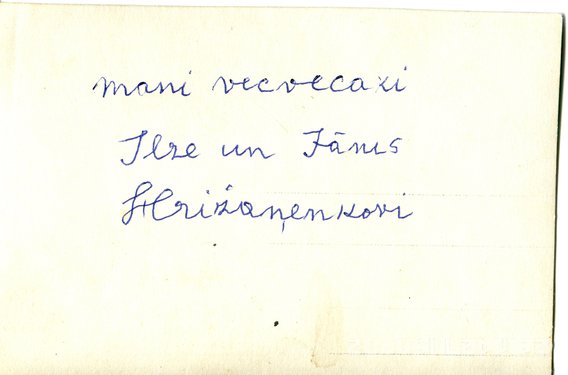 mani vecvecaki
Ilze un Jānis
Križaņenkovi